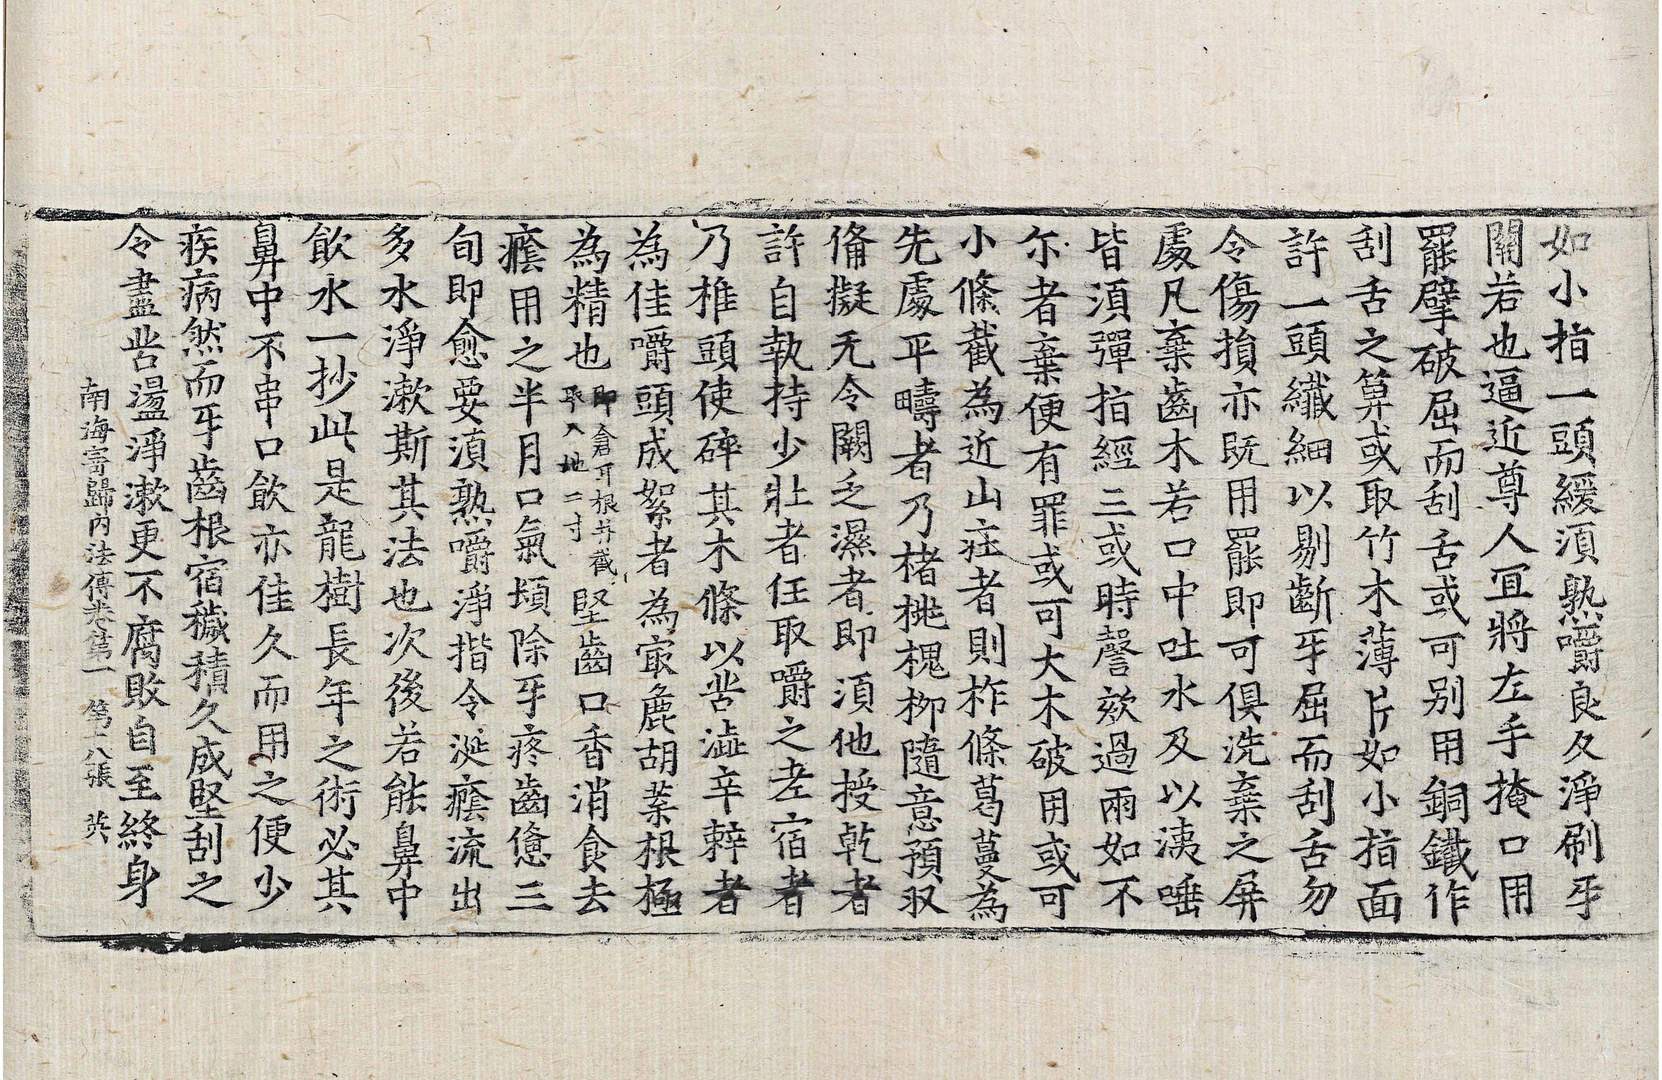 如小指一頭緩湏熟嚼良久淨刷牙
關若也逼近尊人冝將左手掩口用
罷擘破屈而刮舌或可别用銅鐵作
刮舌之箅或取竹木薄片如小指面
許一頭纖細以剔齗牙屈而刮舌勿
令傷損亦旣用罷即可俱洗棄之屏
處凡棄齒木若口中吐水及以洟唾
皆湏彈指經三或時謦欬過兩如不
尓者棄便有罪或可大木破用或可
小條截為近山疘者則柞條葛蔓為
先處平疇者乃楮桃槐柳隨意預収
俻擬无令闕乏濕者即湏他授乾者
許自執持少壯者任取嚼之老宿者
乃椎頭使碎其木條以苦澁辛辢者
為佳嚼頭成絮者為㝡麁胡葈根極
為精也即倉耳根并截取入地二寸堅齒口香消食去
癊用之半月口氣頓除牙疼齒憊三
旬即愈要湏熟嚼淨揩令涎癊流出
多水淨漱斯其法也次後若能鼻中
飲水一抄此是龍樹長年之術必其
鼻中不串口飲亦佳久而用之便少
疾病然而牙齒根宿穢積久成堅刮之
令盡苦盪淨漱更不腐敗自至終身
南海寄歸内法傳卷第一 第十八張 英